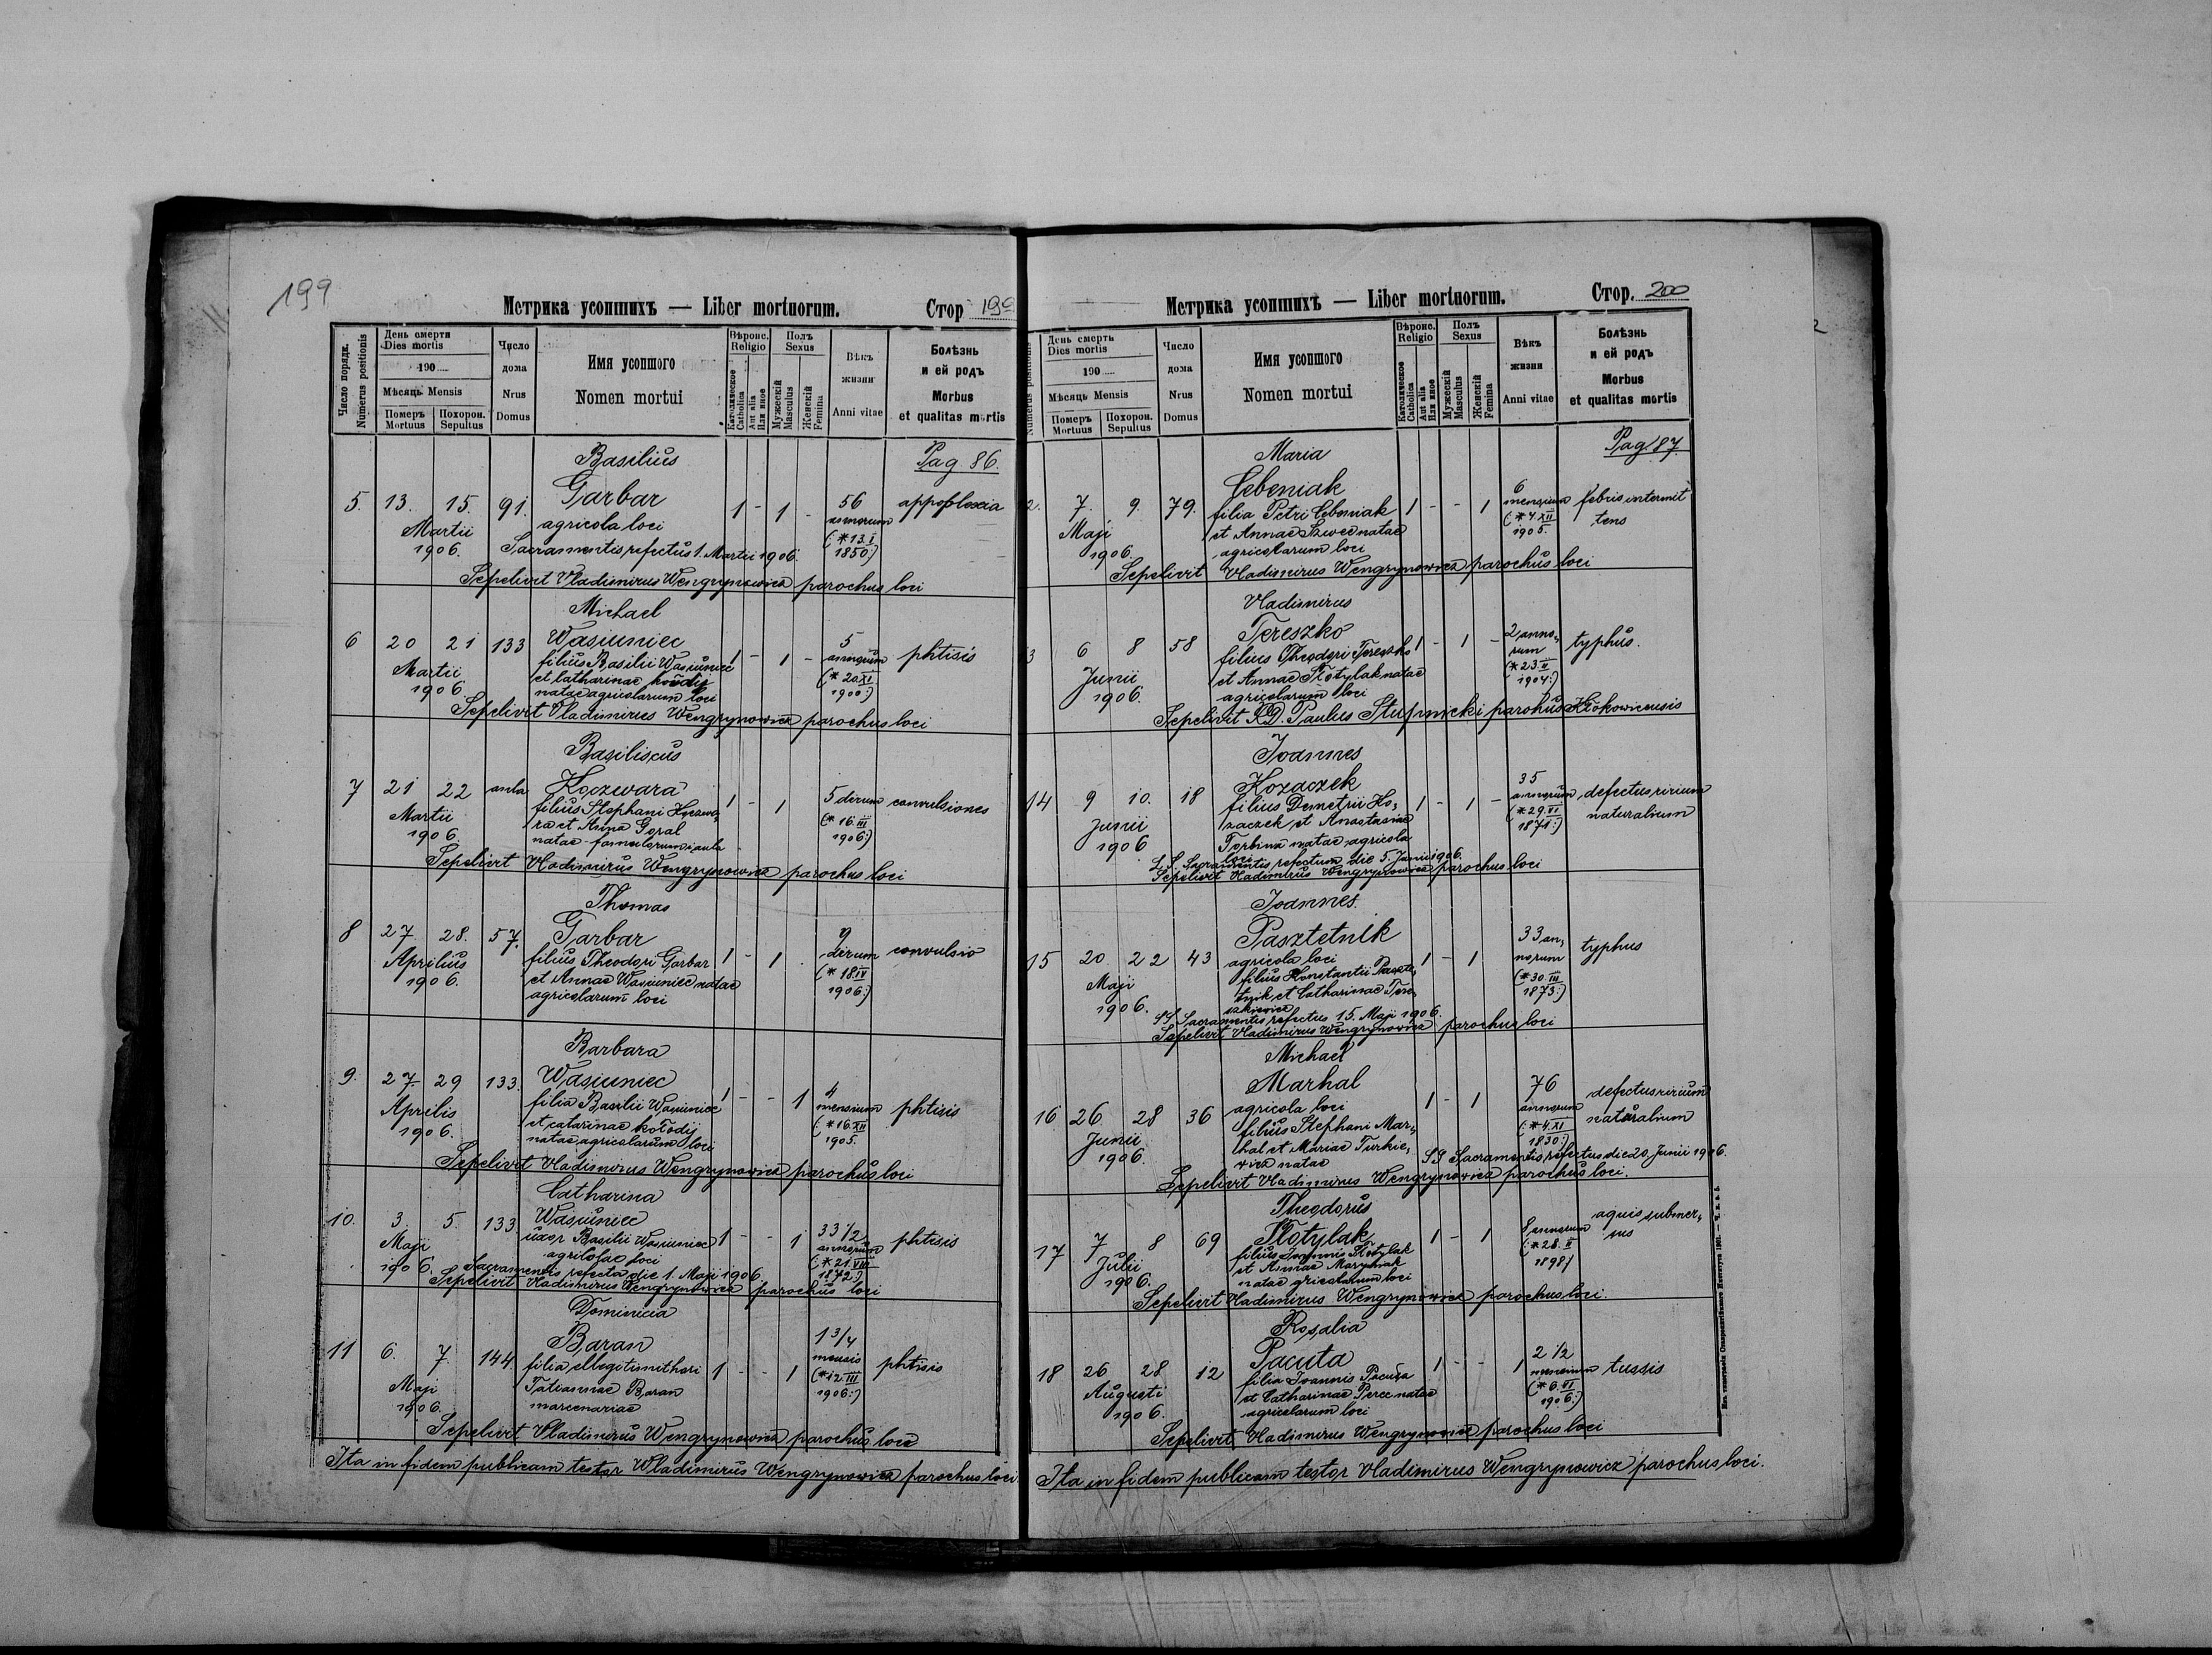 199
Метрика усопшихъ — Liber mortuorum.
Стор 199
Число порядк.
Numerus positionis
День смерти
Dies mortis
190
Мѣсяць Mensis
Померъ
Mortuus
Похорон.
Sepultus
Число
дома
Nrus
Domus
Имя усопшого
Nomen mortui
Вѣроис.
Religio
Католическое
Catholica
Aut alia
Или иное
Полъ
Sexus
Мужескій
Masculus
Женскій
Femina
Вѣкъ
жизни
Anni vitae
Болѣзнь
и ей родъ
Morbus
et qualitas mortis
Pag 86.
Basilius
5. 13. 15. 91. Garbar 1 - 1 - 56 appoplexia
Martii agricola loci annorum
1906. Sacramentis refectus 1. Martii 1906. (*13.I 1850:)
Sepelivit Vladimirus Wengrynowicz parochus loci
Michael
6 20 21 133 Wasiuniec 1 - 1 - 5 phtisis
Martii filius Basilii Wasiuniec annorum
1906. et Catharinae kołodij (*20.XI 1900:)
natae agricolarum loci
Sepelivit Vladimirus Wengrynowicz parochus loci
Basiliscus
7 21 22 aula Koczwara 1 - 1 5 dierum convulsiones
Martii filius Stephani Koczwa-
1906. ra et Anna Goral (*16.III 1906:)
natae famulorum aula
Sepelivit Vladimirus Wengrynowicz parochus loci
Thomas
8 27 28. 57. Garbar 1 - 1 . 9 convulsio
Aprilius filius Theodori Garbar dierum
1906. et Annae Wasiuniec natae (*18.IV 1906:)
agricolarum loci
Barbara
9. 27. 29 133. Wasiuniec 1 - - 1 4 phtisis
Aprilis filia Basilii Wasiuniec mensium
1906. et catarinae kołodij (*16.XII 1905.
natae agricolarum loci
Sepelivit Vladimirus Wengrynowicz parochus loci
Catharina
10. 3. 5. 133 Wasiuniec 1 - - 1 33 1/2 phtisis
Maji uxor Basilii Wasiuniec annorum
1906. loci (*21.VIII 1872:)
Sacramentis refecta die 1. Maji 1906.
Sepelivit Vladimirus Wengrynowicz parochus loci
Dominicia
11 6. 7. 144 Baran 1 - - 1 1 3/4 phtisis
Maji filia illegitimi thori mensis
1906. Tatiannae Baran (*12.III 1906:)
mercenariae
Sepelivit Vladimirus Wengrynowicz parochus loci
Ita in fidem publicam testor Wladimirus Wengrynowicz parochus loci
Метрика усопшихъ — Liber mortuorum.
Стор. 200
Numerus positionis
День смерть
Dies mortis
190
Мѣсяць Mensis
Померъ
Mortuus
Похорон.
Sepultus
Число
дома
Nrus
Domus
Имя усопшого
Nomen mortui
Вѣроис.
Religio
Католическое
Catholica
Aut alia
Или иное
Полъ
Sexus
Мужескій
Masculus
Женскій
Femina
Вѣкъ
жизни
Anni vitae
Болѣзнь
и ей родъ
Morbus
et qualitas mortis
Pag. 87
Maria
2. 7. 9. 79. Cebeniak 1 - - 1 6 febris intermit
Maji filia Petri Cebeniak mensium tens
1906. et Annae Szwec natae (*4.XII 1905.
agricolarum loci
Sepelivit Vladimirus Wengrynowicz parochus loci
Vladimirus
3 6 8 58 Tereszko 1 - 1 - 2 anno- typhus.
Junii filius Theodori Tereszko rum
1906. et Annae Słotylak natae (*23.II 1904:)
agricolarum loci
Sepelivit R.D. Paulus Stupnicki parohus Kłokowicensis
Joannes
14 9 10. 18 Kozaczek 1 - 1 - 35 defectus virium
Junii filius Demetrii Ko- annorum naturalium
1906 zaczek et Anastasiae (*29.VI 1871:)
Torbina natae agricola
loci
S.S. Sacramentis refectum die 5. Junii 1906.
Sepelivit Vladimirus Wengrynowicz parochus loci
Joannes.
15 20. 22 43 Pasztetnik 1 - 1 33 an- typhus
Maji agricola loci norum
1906. filius Konstantii Paszte- (*30.III 1873:)
tnik et Catharinae Tere-
szkiewicz
SS Sacramentis refectus 15. Maji 1906.
Sepelivit Vladimirus Wengrynowicz parochus loci
Michael
16 26 28 36 Marhal 1 - 1 76 defectus virium
Junii agricola loci annorum naturalium
1906. filius Stephani Mar- (*4.XI 1830:)
hal et Mariae Turkie-
wicz natae SS Sacramentis refectus die 20. Junii 1906.
Sepelivit Vladimirus Wengrynowicz parochus loci.
Theodorus
17 7 8 69 Słotylak 1 - 1 8 annorum aquis submer-
Julii filius Joannis Słotylak (*28.II 1898/ sus
1906. et Annae Maryniak
natae agricolarum loci
Sepelivit Vladimirus Wengrynowicz parochus loci.
Rosalia
18 26 28 12 Pacuta 1 - - 1 2 1/2 tussis
Augusti filia Joannis Pacuta mensium
1906. et Catharinae Perec natae (*6.VI 1906:)
agricolarum loci
Sepelivit Vladimirus Wengrynowicz parochus loci
Ita in fidem publicam testor Vladimirus Wengrynowicz parochus loci.